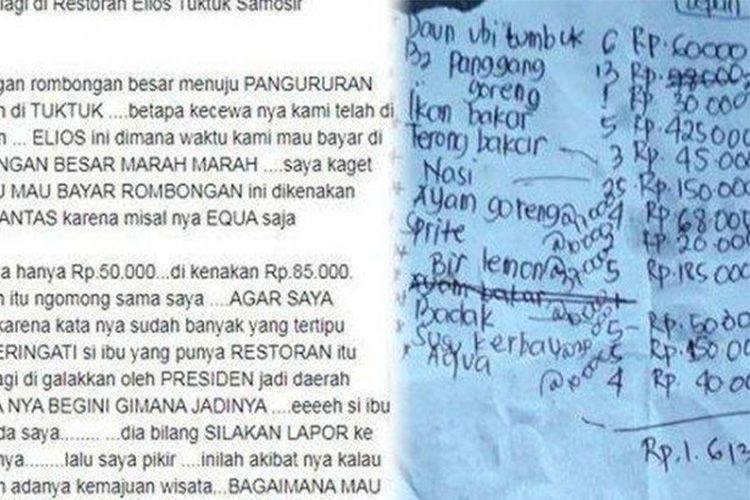 lagi di Restoran Elios Tuktuk Samosir
gan rombongan besar menuju PANGURURAN
n di TUKTUK ....betapa kecewa nya kami telah di
n ... ELIOS ini dimana waktu kami mau bayar di
NGAN BESAR MARAH MARAH ....saya kaget
U MAU BAYAR ROMBONGAN ini dikenakan
ANTAS karena misal nya EQUA saja
a hanya Rp.50.000...di kenakan Rp.85.000.
n itu ngomong sama saya ....AGAR SAYA
karena kata nya sudah banyak yang tertipu
ERINGATI si ibu yang punya RESTORAN itu
agi di galakkan oleh PRESIDEN jadi daerah
A NYA BEGINI GIMANA JADINYA ....eeeeh si ibu
da saya........ ...dia bilang SILAKAN LAPOR ke
nya.......lalu saya pikir ....inilah akibat nya kalau
n adanya kemajuan wisata...BAGAIMANA MAU
Daun ubi tumbuk 6 Rp. 60000
B2 panggang 13 Rp.
goreng 1 Rp. 30 000
Ikan bakar 5 Rp. 425000
Terong bakar 3 Rp. 45 000
Nasi 25 Rp. 150 000
Ayam goreng 4 Rp. 68.000
Sprite 2 Rp. 20 000
Bir lemon 5 Rp. 185 000
Ayam bakar
Badak 5 Rp. 50 000
Susu kerbau 5 Rp. 150 000
Aqua 4 Rp. 40 000
Rp. 1. 613